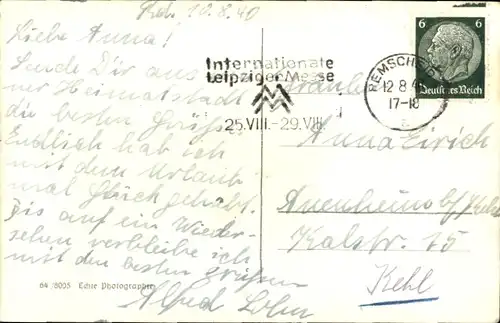 Rsch. 10.8.40
Liebe Anna!
Sende Dir aus
ner Heimatstadt
die besten Grüße
Endlich hab ich
mit dem Urlaub
mal Glück gehabt.
Bis auf ein Wieder-
sehen verbleibe ich
mit den besten Grüßen
Alfred Lohn
64/8005 Echte Photographie
Internationale
Leipziger Messe
MM
25.VIII.-29.VIII.
REMSCHEID
12 8 4
17-18
6 6
Deutsches Reich
Fräulein
Anna Eirich
Auenheim b/ Kehl
Kalstr. 75
Kehl